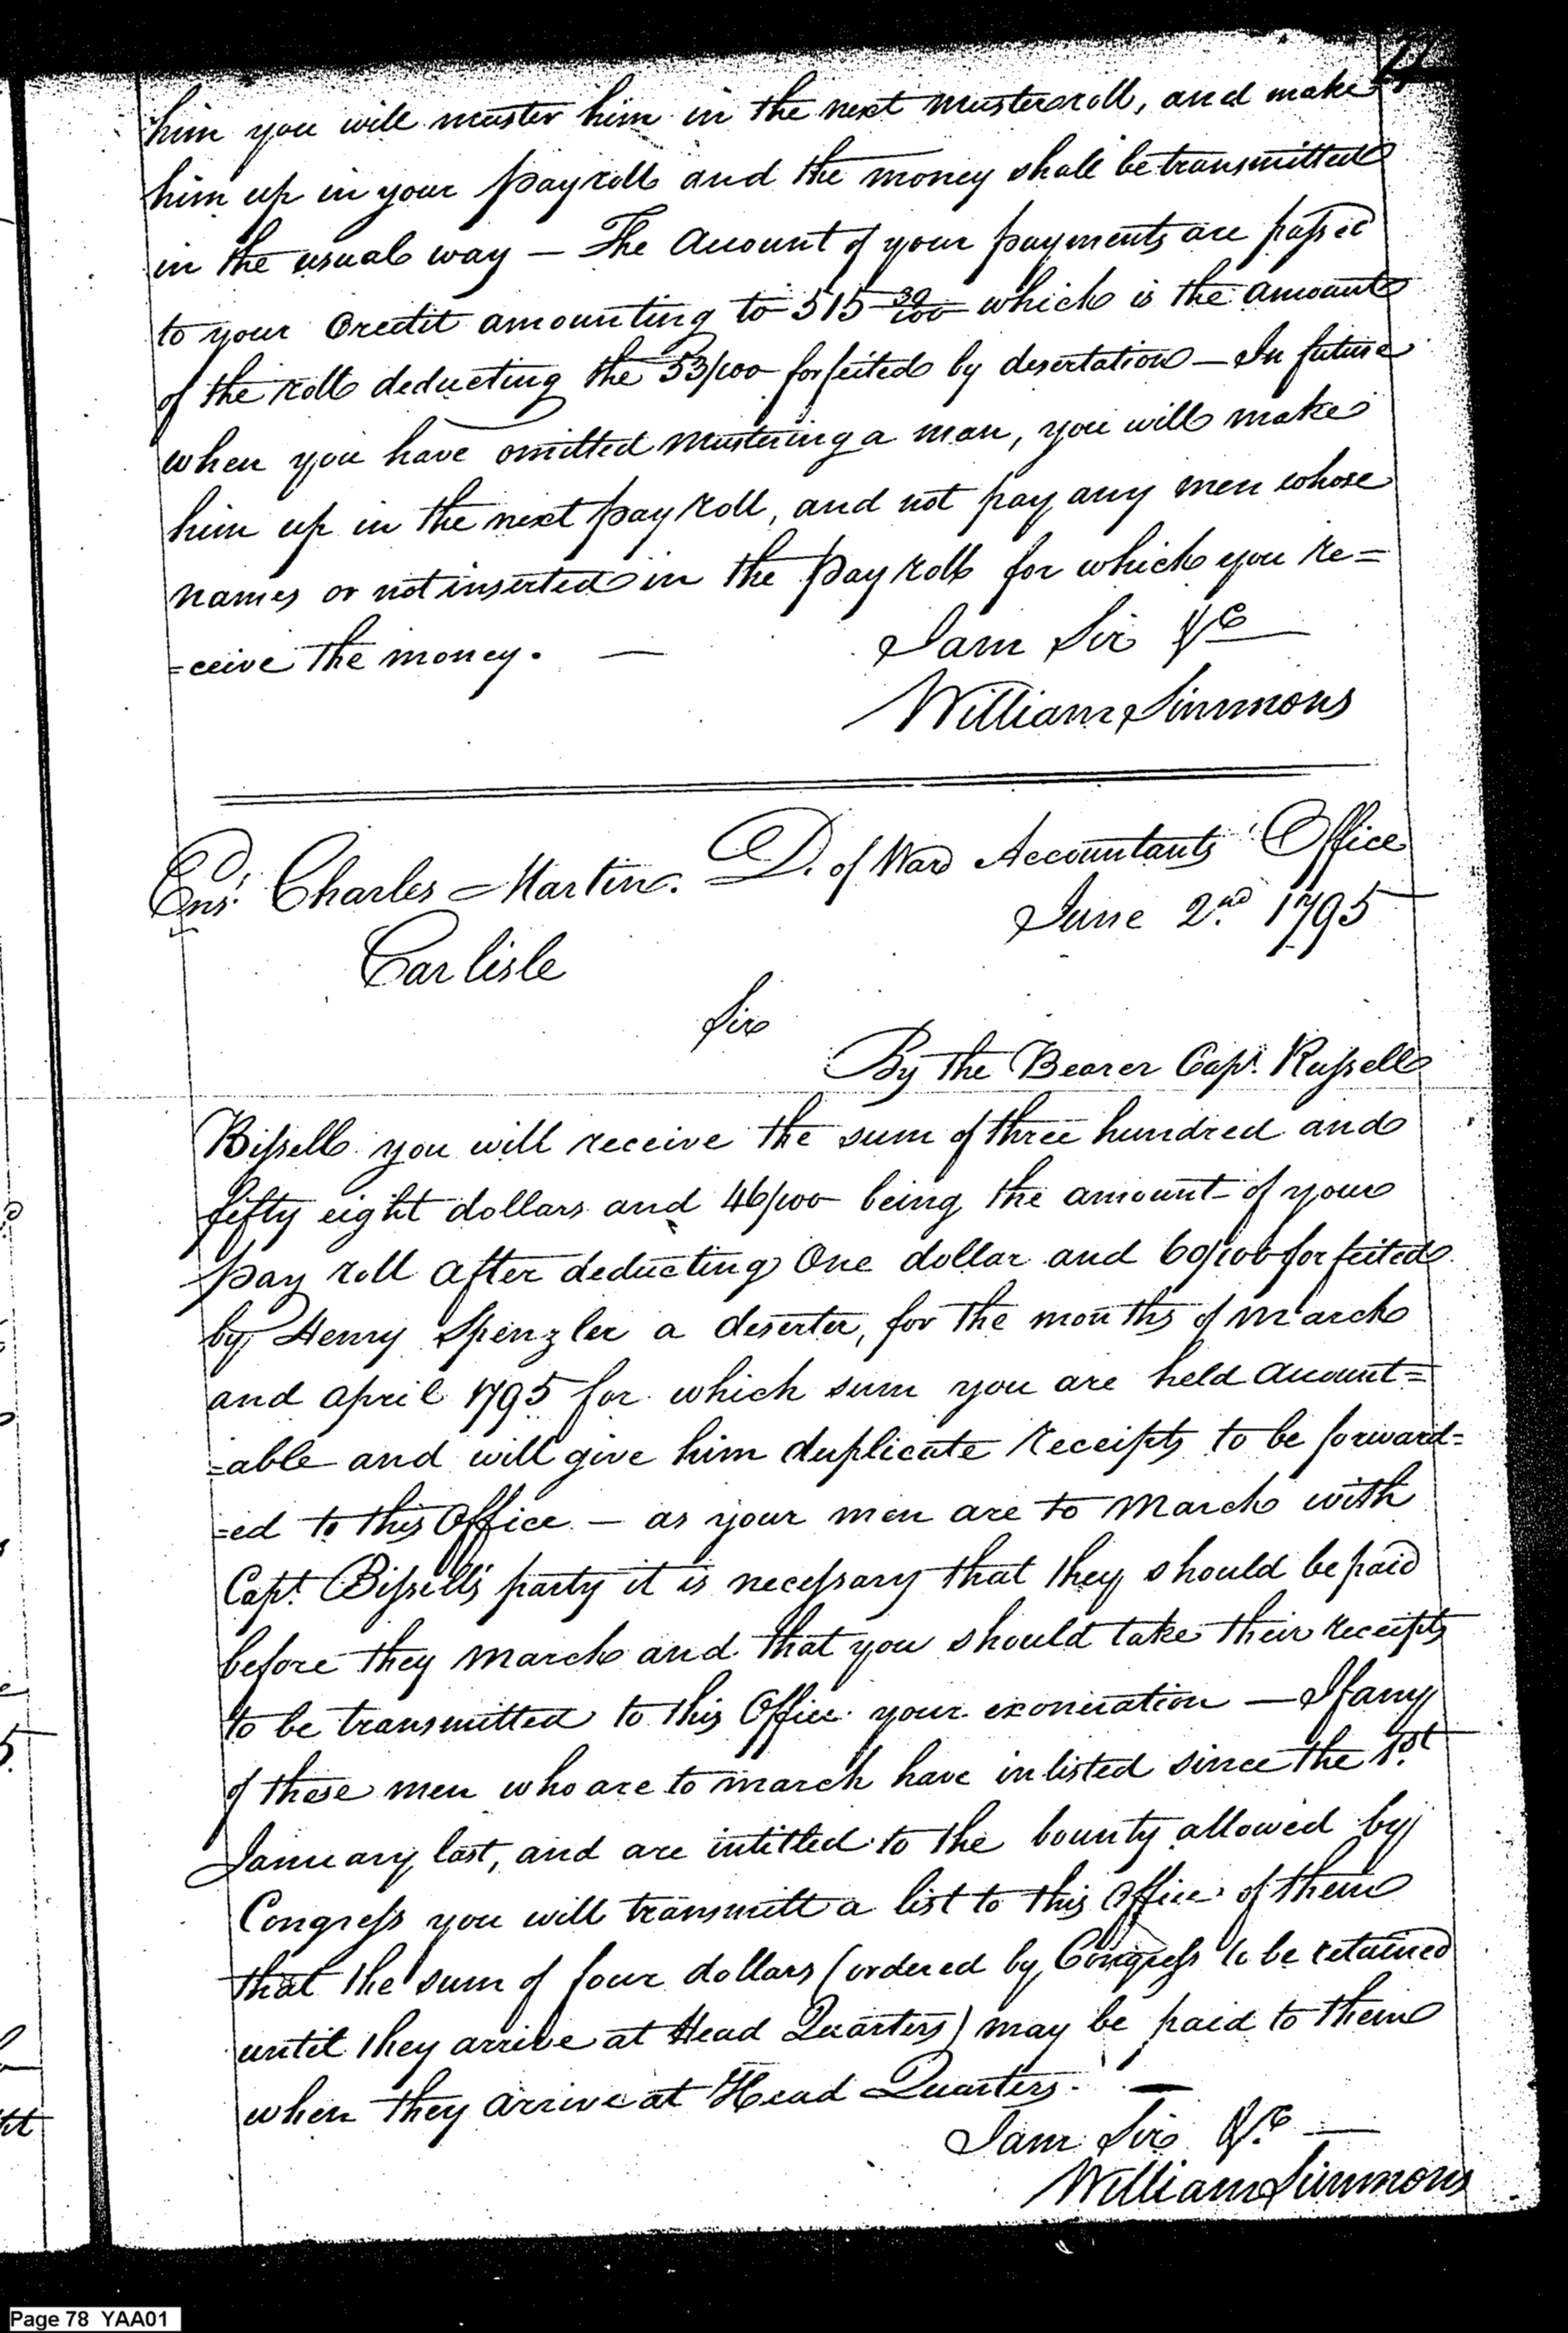 him you will muster him in the next muster roll, and make
him up in your pay roll and the money shall be transmitted
in the usual way — The Account of your payments are passed
to your Credit amounting to 515 30/100 which is the amount
of the roll deducting the 53/100 forfeited by desertation — In future
when you have omitted mustering a man, you will make
him up in the next pay roll, and not pay any men whose
names or not inserted in the pay roll for which you re=
=ceive the money. —
I am Sir &c
William Simmons
Ens: Charles Martin. D. of War Accountants Office
June 2nd 1795
Carlisle
Sir
By the Bearer Capt. Russell
Bissell you will receive the sum of three hundred and
fifty eight dollars and 46/100 being the amount of your
pay roll after deducting One dollar and 60/100 forfeited
by Henry Spenzler a deserter, for the months of March
and april 1795 for which sum you are held account=
=able and will give him duplicate receipts to be forward=
=ed to this Office — as your men are to March with
Capt. Bissell's party it is necessary that they should be paid
before they march and that you should take their receipts
to be transmitted to this Office your exoneration — If any
of these men who are to march have inlisted since the 1st
January last, and are intitled to the bounty allowed by
Congress you will transmitt a list to this Office of them
that the sum of four dollars (ordered by Congress to be retained
until they arrive at Head Quarters) may be paid to them
when they arrive at Head Quarters. —
I am Sir &c —
William Simmons
Page 78 YAA01